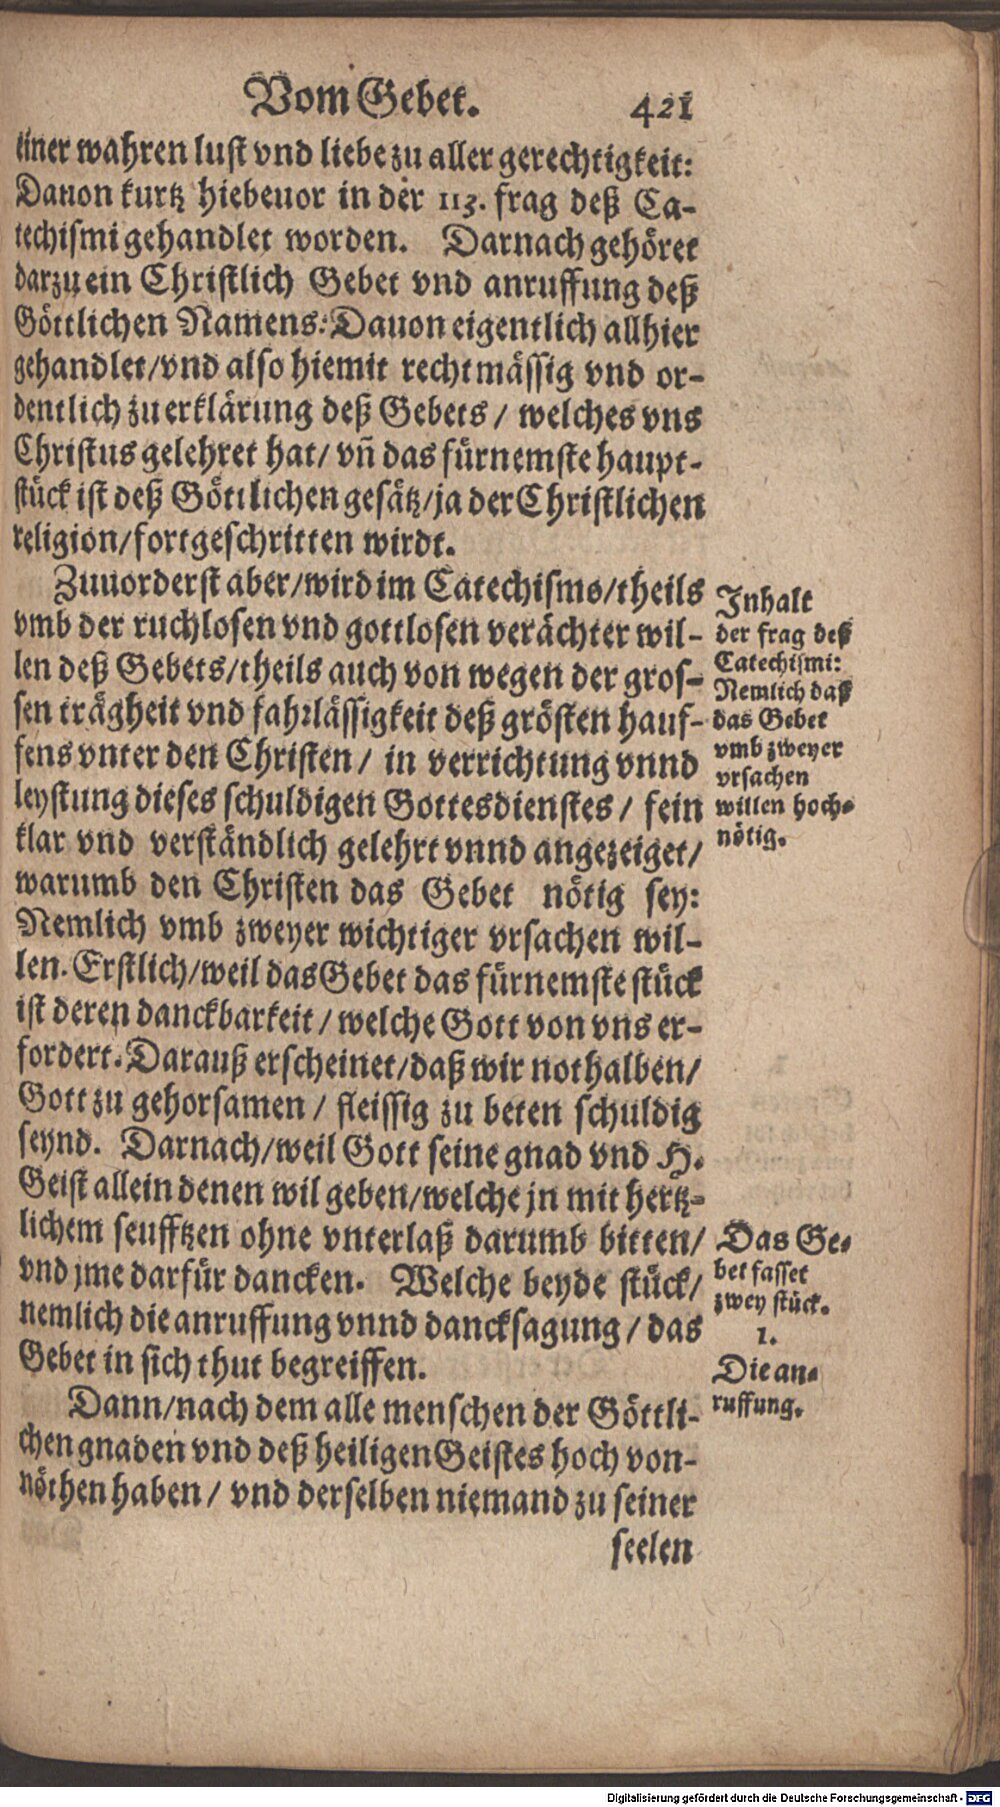 Vom Gebet. 421
einer wahren lust vnd liebe zu aller gerechtigkeit:
Dauon kurtz hiebeuor in der 113. frag deß Ca-
techismi gehandlet worden. Darnach gehöret
darzu ein Christlich Gebet vnd anruffung deß
Göttlichen Namens: Dauon eigentlich allhier
gehandlet/vnd also hiemit rechtmässig vnd or-
dentlich zu erklärung deß Gebets/ welches vns
Christus gelehret hat/ vñ das fürnemste haupt-
stück ist deß Göttlichen gesätz/ja der Christlichen
religion/fortgeschritten wirdt.
Zuuorderst aber/wird im Catechismo/theils
vmb der ruchlosen vnd gottlosen verächter wil-
len deß Gebets/theils auch von wegen der gros-
sen trägheit vnd fahrlässigkeit deß grösten hauf-
fens vnter den Christen/ in verrichtung vnnd
leystung dieses schuldigen Gottesdienstes/ fein
klar vnd verständlich gelehrt vnnd angezeiget/
warumb den Christen das Gebet nötig sey:
Nemlich vmb zweyer wichtiger vrsachen wil-
len. Erstlich/weil das Gebet das fürnemste stück
ist deren danckbarkeit/ welche Gott von vns er-
fordert. Darauß erscheinet/daß wir nothalben/
Gott zu gehorsamen/ fleissig zu beten schuldig
seynd. Darnach/weil Gott seine gnad vnd H.
Geist allein denen wil geben/welche jn mit hertz-
lichem seufftzen ohne vnterlaß darumb bitten/
vnd jme darfür dancken. Welche beyde stück/
nemlich die anruffung vnnd dancksagung/ das
Gebet in sich thut begreiffen.
Dann/nach dem alle menschen der Göttli-
chen gnaden vnd deß heiligen Geistes hoch von-
nöthen haben/ vnd derselben niemand zu seiner
seelen
Inhalt
der frag deß
Catechismi:
Nemlich daß
das Gebet
vmb zweyer
vrsachen
willen hoch-
nötig.
Das Ge-
bet fasset
zwey stück.
1.
Die an-
ruffung.
Digitalisierung gefördert durch die Deutsche Forschungsgemeinschaft - DFG